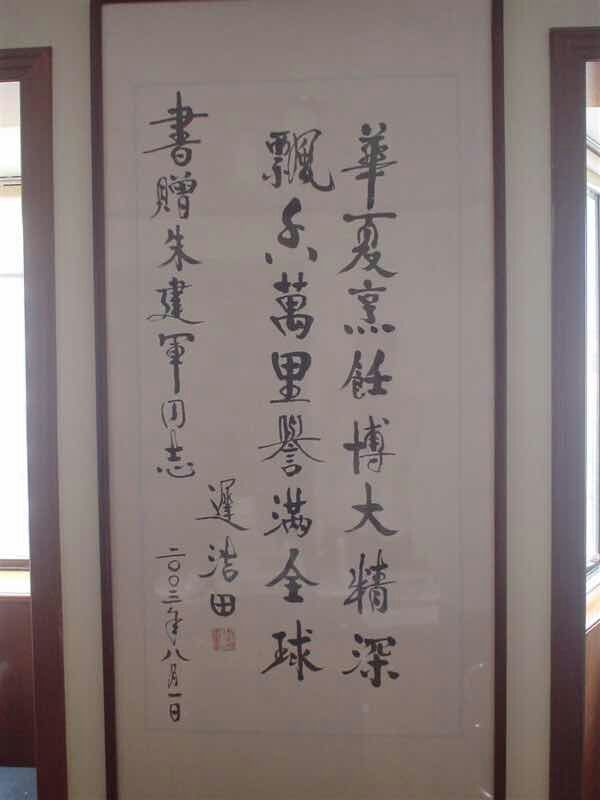 華夏烹飪博大精深
飄香萬里譽滿全球
書贈朱建軍同志
遲浩田
二〇〇三年八月一日